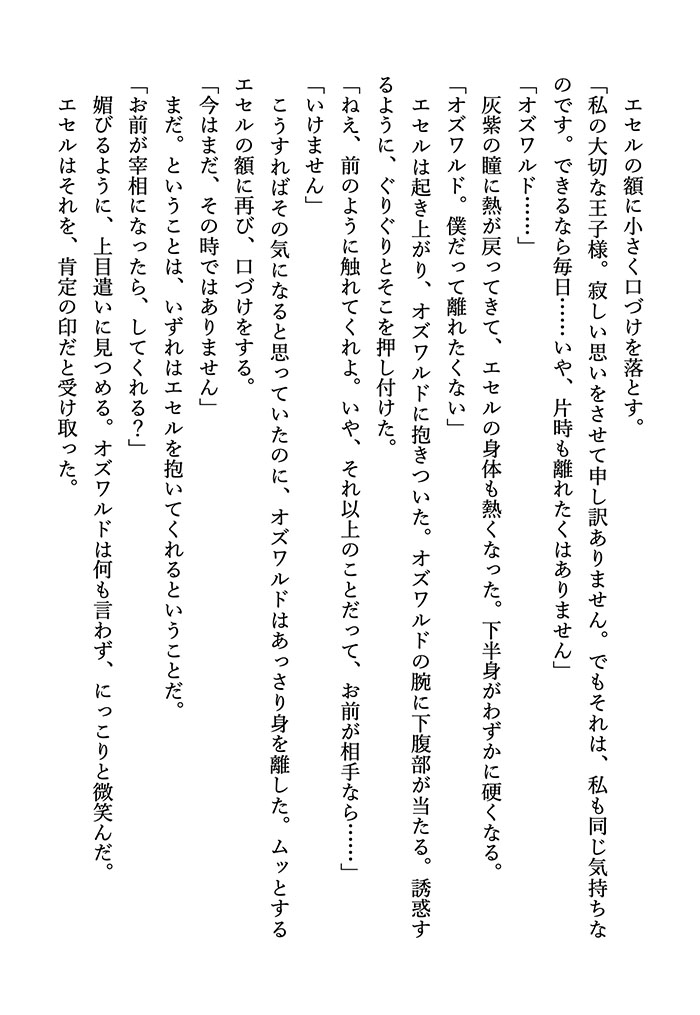 エセルの額に小さく口づけを落とす。
「私の大切な王子様。寂しい思いをさせて申し訳ありません。でもそれは、私も同じ気持ちな
のです。できるなら毎日……いや、片時も離れたくはありません」
「オズワルド……」
灰紫の瞳に熱が戻ってきて、エセルの身体も熱くなった。下半身がわずかに硬くなる。
「オズワルド。僕だって離れたくない」
エセルは起き上がり、オズワルドに抱きついた。オズワルドの腕に下腹部が当たる。誘惑す
るように、ぐりぐりとそこを押し付けた。
「ねえ、前のように触れてくれよ。いや、それ以上のことだって、お前が相手なら……」
「いけません」
こうすればその気になると思っていたのに、オズワルドはあっさり身を離した。ムッとする
エセルの額に再び、口づけをする。
「今はまだ、その時ではありません」
まだ。ということは、いずれはエセルを抱いてくれるということだ。
「お前が宰相になったら、してくれる?」
媚びるように、上目遣いに見つめる。オズワルドは何も言わず、にっこりと微笑んだ。
エセルはそれを、肯定の印だと受け取った。